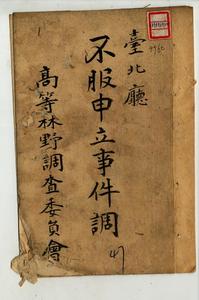 臺北廳
不服申立事件調
高等林野調查委員會